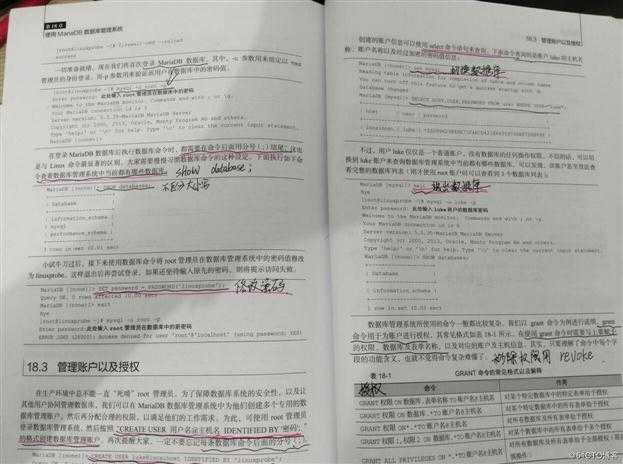 第18章
使用 MariaDB 数据库管理系统
[root@linuxprobe ~]# firewall-cmd --reload
success
一切准备就绪。现在我们将首次登录 MariaDB 数据库。其中，-u 参数用来指定以 root
管理员的身份登录，而-p 参数用来验证该用户在数据库中的密码值。
[root@linuxprobe ~]# mysql -u root -p
Enter password: 此处输入 root 管理员在数据库中的密码
Welcome to the MariaDB monitor. Commands end with ; or \g.
Your MariaDB connection id is
Server version: 5.5.35-MariaDB MariaDB Server
Copyright (c) 2000, 2013, Oracle, Monty Program Ab and others.
Type 'help;' or '\h' for help. Type '\c' to clear the current input statement.
MariaDB [(none)]>
在登录 MariaDB 数据库后执行数据库命令时，都需要在命令后面用分号（;）结尾，这也
是与 Linux 命令最显著的区别。大家需要慢慢习惯数据库命令的这种设定。下面执行如下命
令查看数据库管理系统中当前都有哪些数据库。
show database;
MariaDB [(none)]> SHOW databases;
不区分大小写
| Database |
| information_schema |
| mysql |
| performance_schema |
3 rows in set (0.01 sec)
小试牛刀过后，接下来使用数据库命令将 root 管理员在数据库管理系统中的密码值修改
为 linuxprobe。这样退出后再尝试登录，如果还坚持输入原先的密码，则将提示访问失败。
MariaDB [(none)]> SET password = PASSWORD('linuxprobe');
Query OK, 0 rows affected (0.00 sec)
修改密码
MariaDB [(none)]> exit
Bye
[root@linuxprobe ~]# mysql -u root -p
Enter password: 此处输入 root 管理员在数据库中的新密码
ERROR 1045 (28000): Access denied for user 'root'@'localhost' (using password: YES)
18.3 管理账户以及授权
在生产环境中总不能一直“死磕”root 管理员。为了保障数据库系统的安全性，以及让
其他用户协同管理数据库，我们可以在 MariaDB 数据库管理系统中为他们创建多个专用的数
据库管理账户，然后再分配合理的权限，以满足他们的工作需求。为此，可使用 root 管理员
登录数据库管理系统，然后按照“CREATE USER 用户名@主机名 IDENTIFIED BY '密码';”
的格式创建数据库管理账户。再次提醒大家，一定不要忘记每条数据库命令后面的分号（;）。
MariaDB [(none)]> CREATE USER luke@localhost IDENTIFIED BY 'linuxprobe';
18.3 管理账户以及授权
创建的账户信息可以使用 select 命令语句来查询。下面命令查询的是账户 luke 的主机名
称、账户名称以及经过加密的密码值信息：
MariaDB [(none)]> use mysql;
切换数据库
Reading table information for completion of table and column names
You can turn off this feature to get a quicker startup with -A
Database changed
MariaDB [mysql]> SELECT HOST,USER,PASSWORD FROM user WHERE USER="luke";
不过，用户 luke 仅仅是一个普通账户，没有数据库的任何操作权限。不信的话，可以切
换到 luke 账户来查询数据库管理系统中当前都有哪些数据库。可以发现，该账户甚至没法查
看完整的数据库列表（刚才使用 root 账户时可以查看到 3 个数据库列表）：
MariaDB [mysql]> exit
退出数据库
Bye
[root@linuxprobe ~]# mysql -u luke -p
Enter password: 此处输入 luke 账户的数据库密码
Welcome to the MariaDB monitor. Commands end with ; or \g.
Server version: 5.5.35-MariaDB MariaDB Server
Copyright (c) 2000, 2013, Oracle, Monty Program Ab and others.
Type 'help;' or '\h' for help. Type '\c' to clear the current input statement.
| Database |
| information_schema |
1 row in set (0.03 sec)
数据库管理系统所使用的命令一般都比较复杂。我们以 grant 命令为例进行说明。grant
命令用于为账户进行授权，其常见格式如表 18-1 所示。在使用 grant 命令时需要写上要赋予
的权限、数据库及表单名称，以及对应的账户及主机信息。其实，只要理解了命令中每个字
段的功能含义，也就不觉得命令复杂难懂了。
revoke.
表 18-1 GRANT 命令的常见格式以及解释
授权
命令 作用
GRANT 权限 ON 数据库.表单名称 TO 账户名@主机名 对某个特定数据库中的特定表单给予授权
GRANT 权限 ON 数据库.*TO 账户名@主机名 对某个特定数据库中的所有表单给予授权
GRANT 权限 ON *.*TO 账户名@主机名 对所有数据库及所有表单给予授权
GRANT 权限 1,权限 2 ON 数据库.*TO 账户名@主机名
GRANT ALL PRIVILEGES ON *.*TO 账户名@主机名